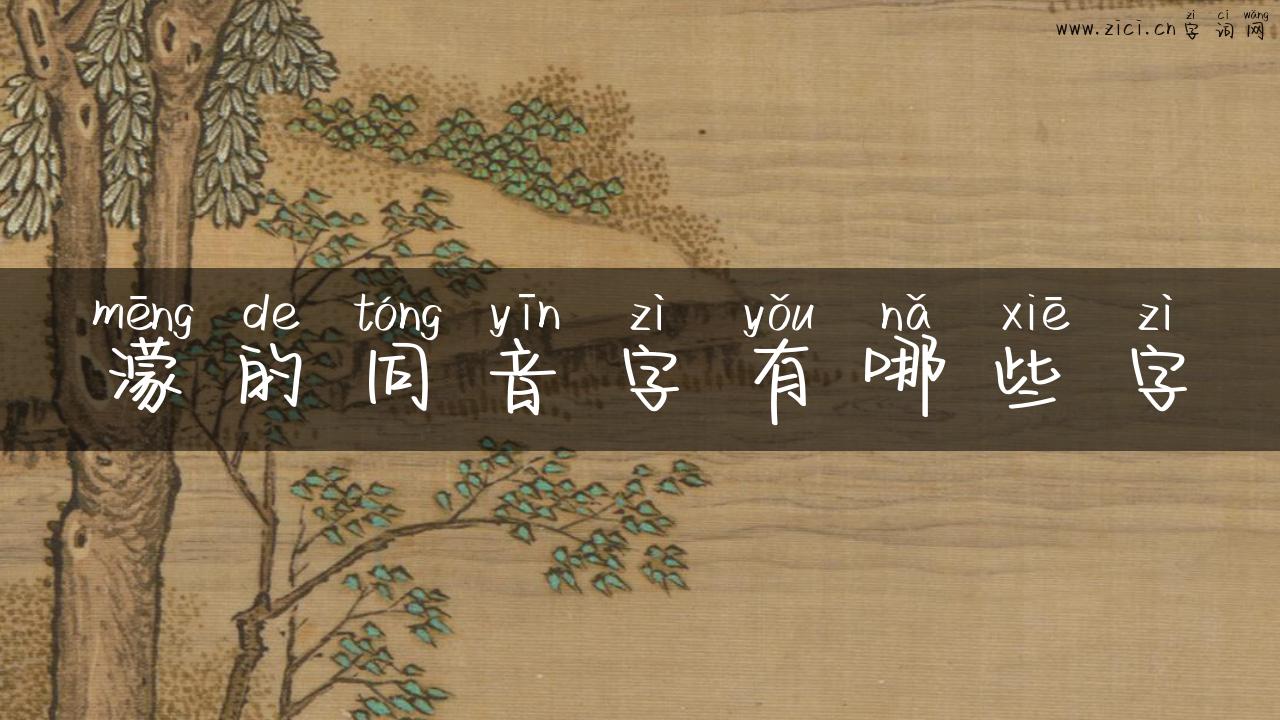 zì cí wǎng
www.zici.cn字词网
mēng de tóng yīn zì yǒu nǎ xiē zì
濛的同音字有哪些字